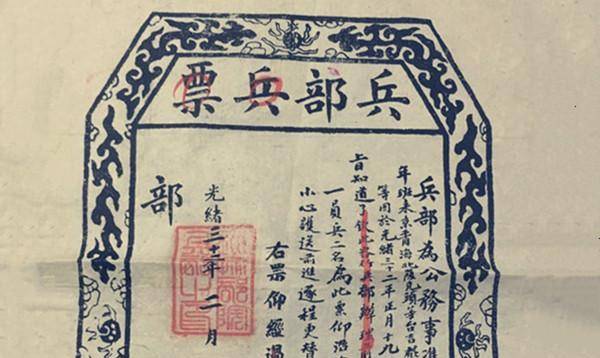 兵部兵票
兵部為公務事准
年班来京青海北頭等台吉
等因於光緒三十二年正月十九
旨知道了欽此咨行兵部辦理
一員兵二名為此票仰沿
小心護送前進逐程更替
右票仰經過
光緒三十二年二月
部